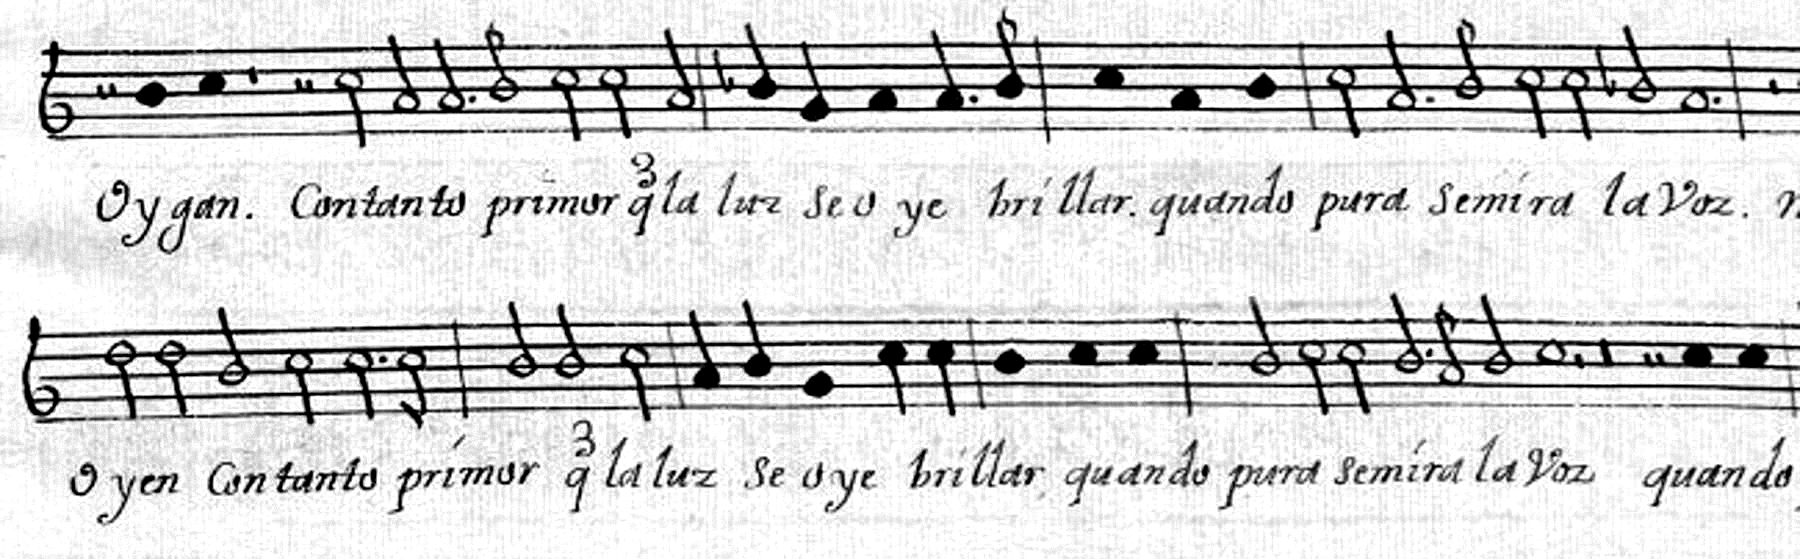 Oygan. Contanto primor q̃ la luz se oye brillar. quando pura semira la Voz.
Oyen Contanto primor q̃ la luz se oye brillar quando pura semira la Voz quando